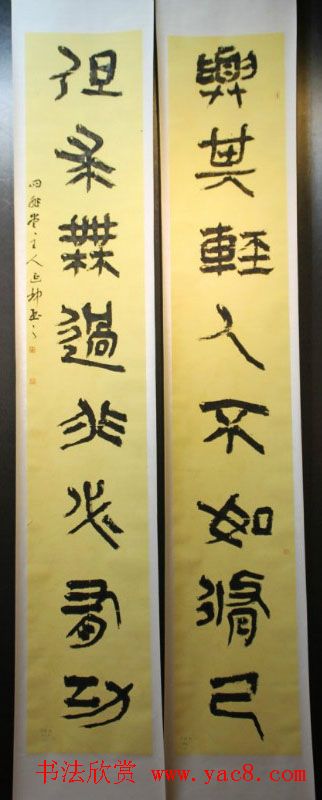 與其輕人不如脩己
但求無過非必有功
堂主人
书法欣赏 www.yac8.com